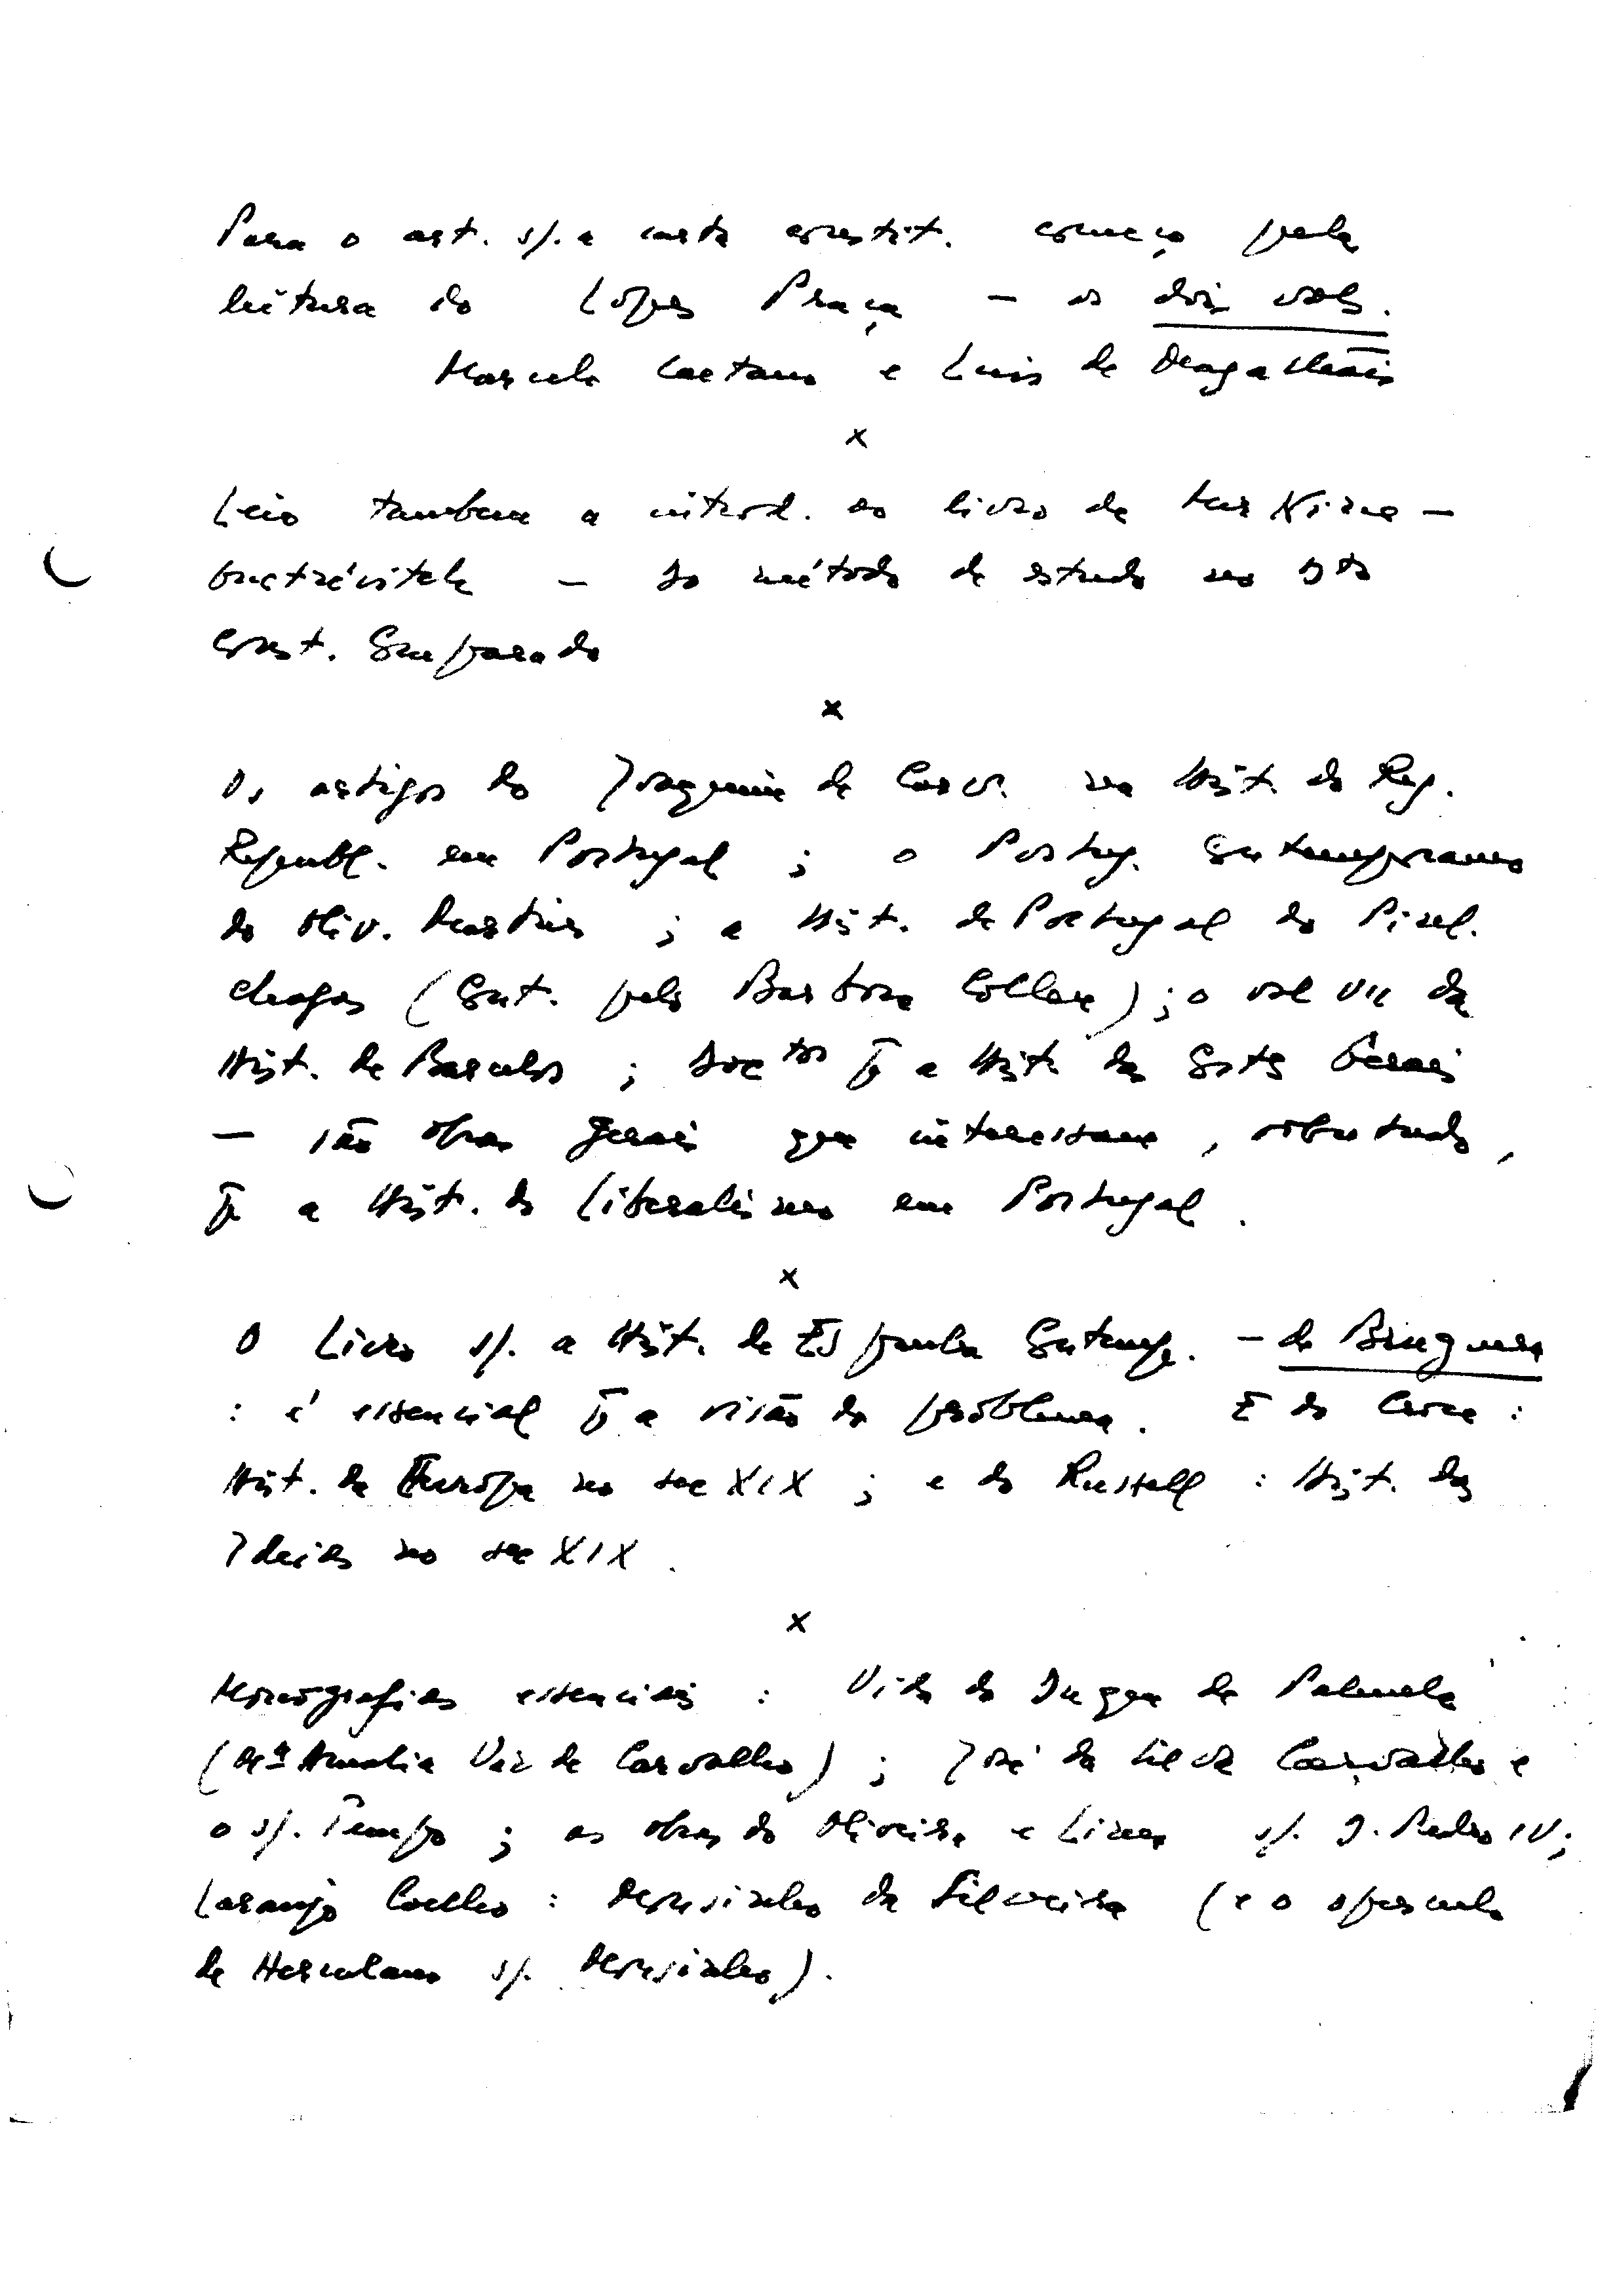 Para o art. s/. a carta constit. começo pela
leitura do Lopes Praça — os dois vols.
Marcelo Caetano e Luis de Magalhães
x
Leio tambem a introd. ao livro de
— do método de estudo no Dto
Const. Comparado
x
Os artigos do Joaquim de Carv. na Hist. do Reg.
Republ. em Portugal ; o Portug. Contemporaneo
do Oliv. Martins ; a Hist. de Portugal do Pinh.
Chagas (Cont. pelo Barbosa Collen) ; o vol VII da
Hist. de Barcelos ; Doctos pª a Hist. das Cortes Gerais
— são obras gerais que interessam, sobretudo,
pª a Hist. do Liberalismo em Portugal.
x
O Livro s/. a Hist. de Espanha Contemp. — de Bruguera
: é essencial pª a visão do problema. E do Croce :
Hist. da Europa no sec XIX ; e do Russell : Hist. das
Ideias no sec XIX.
x
Monografias essenciais : Vida do Duque de Palmela
(Mª Amalia Vaz de Carvalho) ; José da Silva Carvalho e
o s/. Tempo ; as obras do Oliveira e Lima s/. D. Pedro IV;
Laranjo Coelho : Mousinho da Silveira (e o opusculo
de Herculano s/. Mousinho).